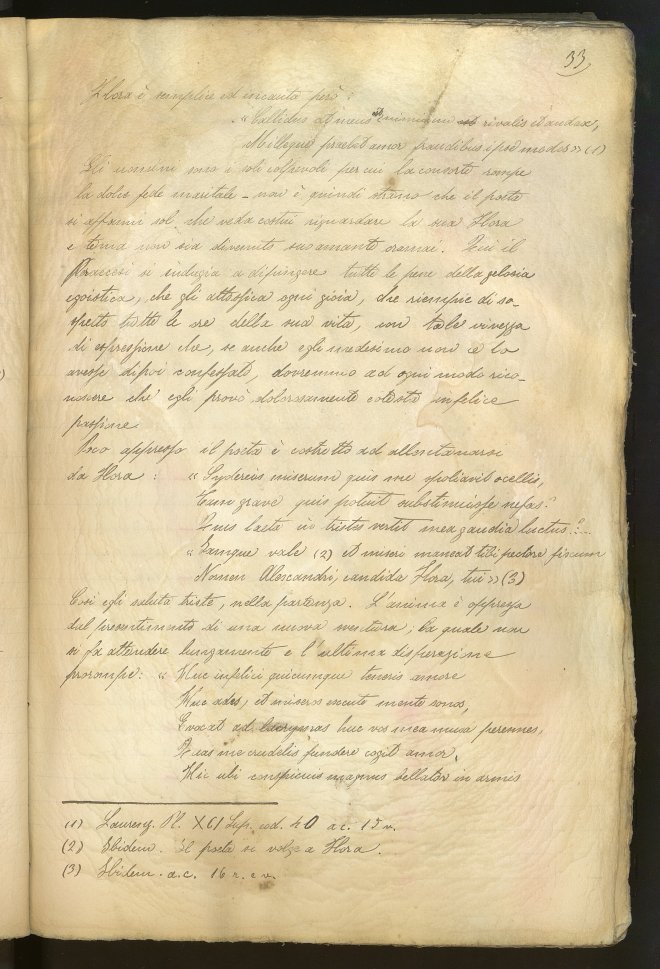 33
Flora è semplice ed incauta però:
"Callidus at meus est nimium et rivalis et audax,
Millequé praebet amor fraudibus ipse modos» (1)
Gli uomini sono i soli colpevoli per cui la consorte rompe
la dolce fede maritale - non è quindi strano che il poeta
si affanni sol che veda costui riguardare la sua Flora
e tema non sia divenuto suo amante oramai. Qui il
Braccesi si indugia a dipingere tutte le pene della gelosia
egoistica, che gli attosfica ogni gioia, che riempie di so-
spetto tutte le ore della sua vita, con tale vivezza
di espressione che, se anche egli medesimo non ce lo
avesse dipoi confessato, dovremmo ad ogni modo rico-
noscere che egli provò dolorosamente codesta infelice
passione.
Poco appresso il poeta è costretto ad allontanarsi
da Flora: "Sydereis miserum quis me spoliavit ocellis,
Tam grave quis potuit substinuisse nefas?
Quis laeta in tristes vertit mea gaudia luctus?....
"Iamque vale (2) et nostro maneat tibi pectore fixum
Nomen Alexandri, candida Flora, tui» (3)
Così egli saluta triste, nella partenza. L'anima è oppressa
dal presentimento di una nuova sventura; la quale non
si fa attendere lungamente e l'ultima disperazione
prorompe: "Huc infelici quicumque teneris amore
Huc ades, et miseros excute mente sonos,
Evocat ad lacrymas huc vos mea musa perennes,
Quas me crudelis fundere cogit amor,
Hic ubi conspicuus magnus bellator in armis
(1) Laurenz. Pl. XCI Sup. cod. 40 a c. 15 v.
(2) Ibidem. Il poeta si volge a Flora.
(3) Ibidem. a.c. 16 r. e v.